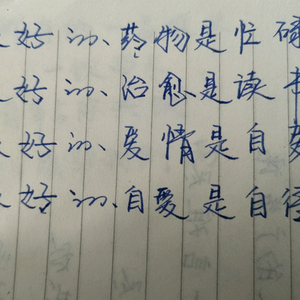 好的、药物是忙
好的、治愈是读
好的、爱情是自
好的、自爱是自